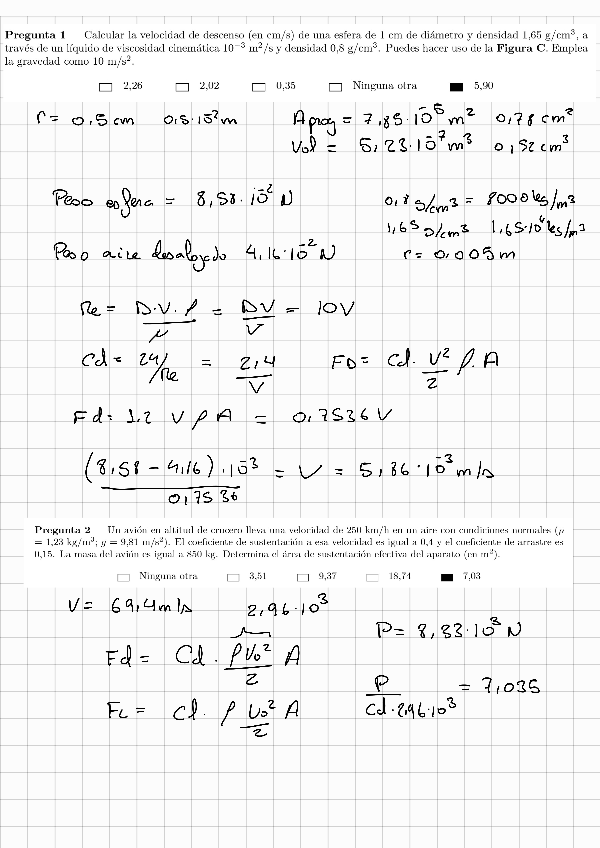 Pregunta 1 Calcular la velocidad de descenso (en cm/s) de una esfera de 1 cm de diámetro y densidad 1,65 g/cm³, a
través de un líquido de viscosidad cinemática 10⁻³ m²/s y densidad 0,8 g/cm³. Puedes hacer uso de la Figura C. Emplea
la gravedad como 10 m/s².
2,26 2,02 0,35 Ninguna otra 5,90
r = 0,5 cm 0,5·10⁻² m A proy = 7,85·10⁻⁵ m² 0,78 cm²
Vol = 5,23·10⁻⁷ m³ 0,52 cm³
Peso esfera = 8,58·10⁻² N 0,8 g/cm³ = 8000 kg/m³
1,65 g/cm³ 1,65·10⁴ kg/m³
Peso aire desalojado 4,16·10⁻² N r = 0,005 m
Re = D·V·ρ/μ = DV/ν = 10V
Cd = 24/Re = 2,4/V FD = Cd · V²/2 ρ·A
Fd = 1.2 V ρ A = 0,7536 V
(8,58 − 4,16)·10⁻³/0,7536 = V = 5,86·10⁻³ m/s
Pregunta 2 Un avión en altitud de crucero lleva una velocidad de 250 km/h en un aire con condiciones normales (ρ
= 1,23 kg/m³; g = 9,81 m/s²). El coeficiente de sustentación a esa velocidad es igual a 0,4 y el coeficiente de arrastre es
0,15. La masa del avión es igual a 850 kg. Determina el área de sustentación efectiva del aparato (en m²).
Ninguna otra 3,51 9,37 18,74 7,03
V = 69,4 m/s 2,96·10³
P = 8,33·10³ N
Fd = Cd · ρU₀²/2 A
P/Cd·2,96·10³ = 7,035
FL = Cl · ρ U₀²/2 A